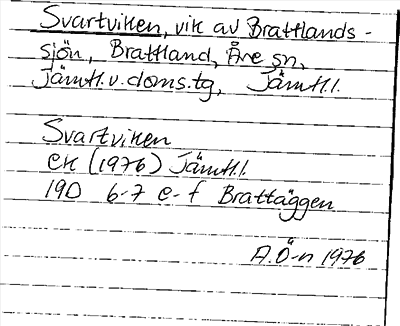 Svartviken, vik av Brattlands-
sjön, Brattland, Åre sn,
Jämtl.v.doms.tg, Jämtl.l.
Svartviken
ek (1976) Jämtl.l.
19D 6-7 e-f Brattäggen
A.Ö-n 1976